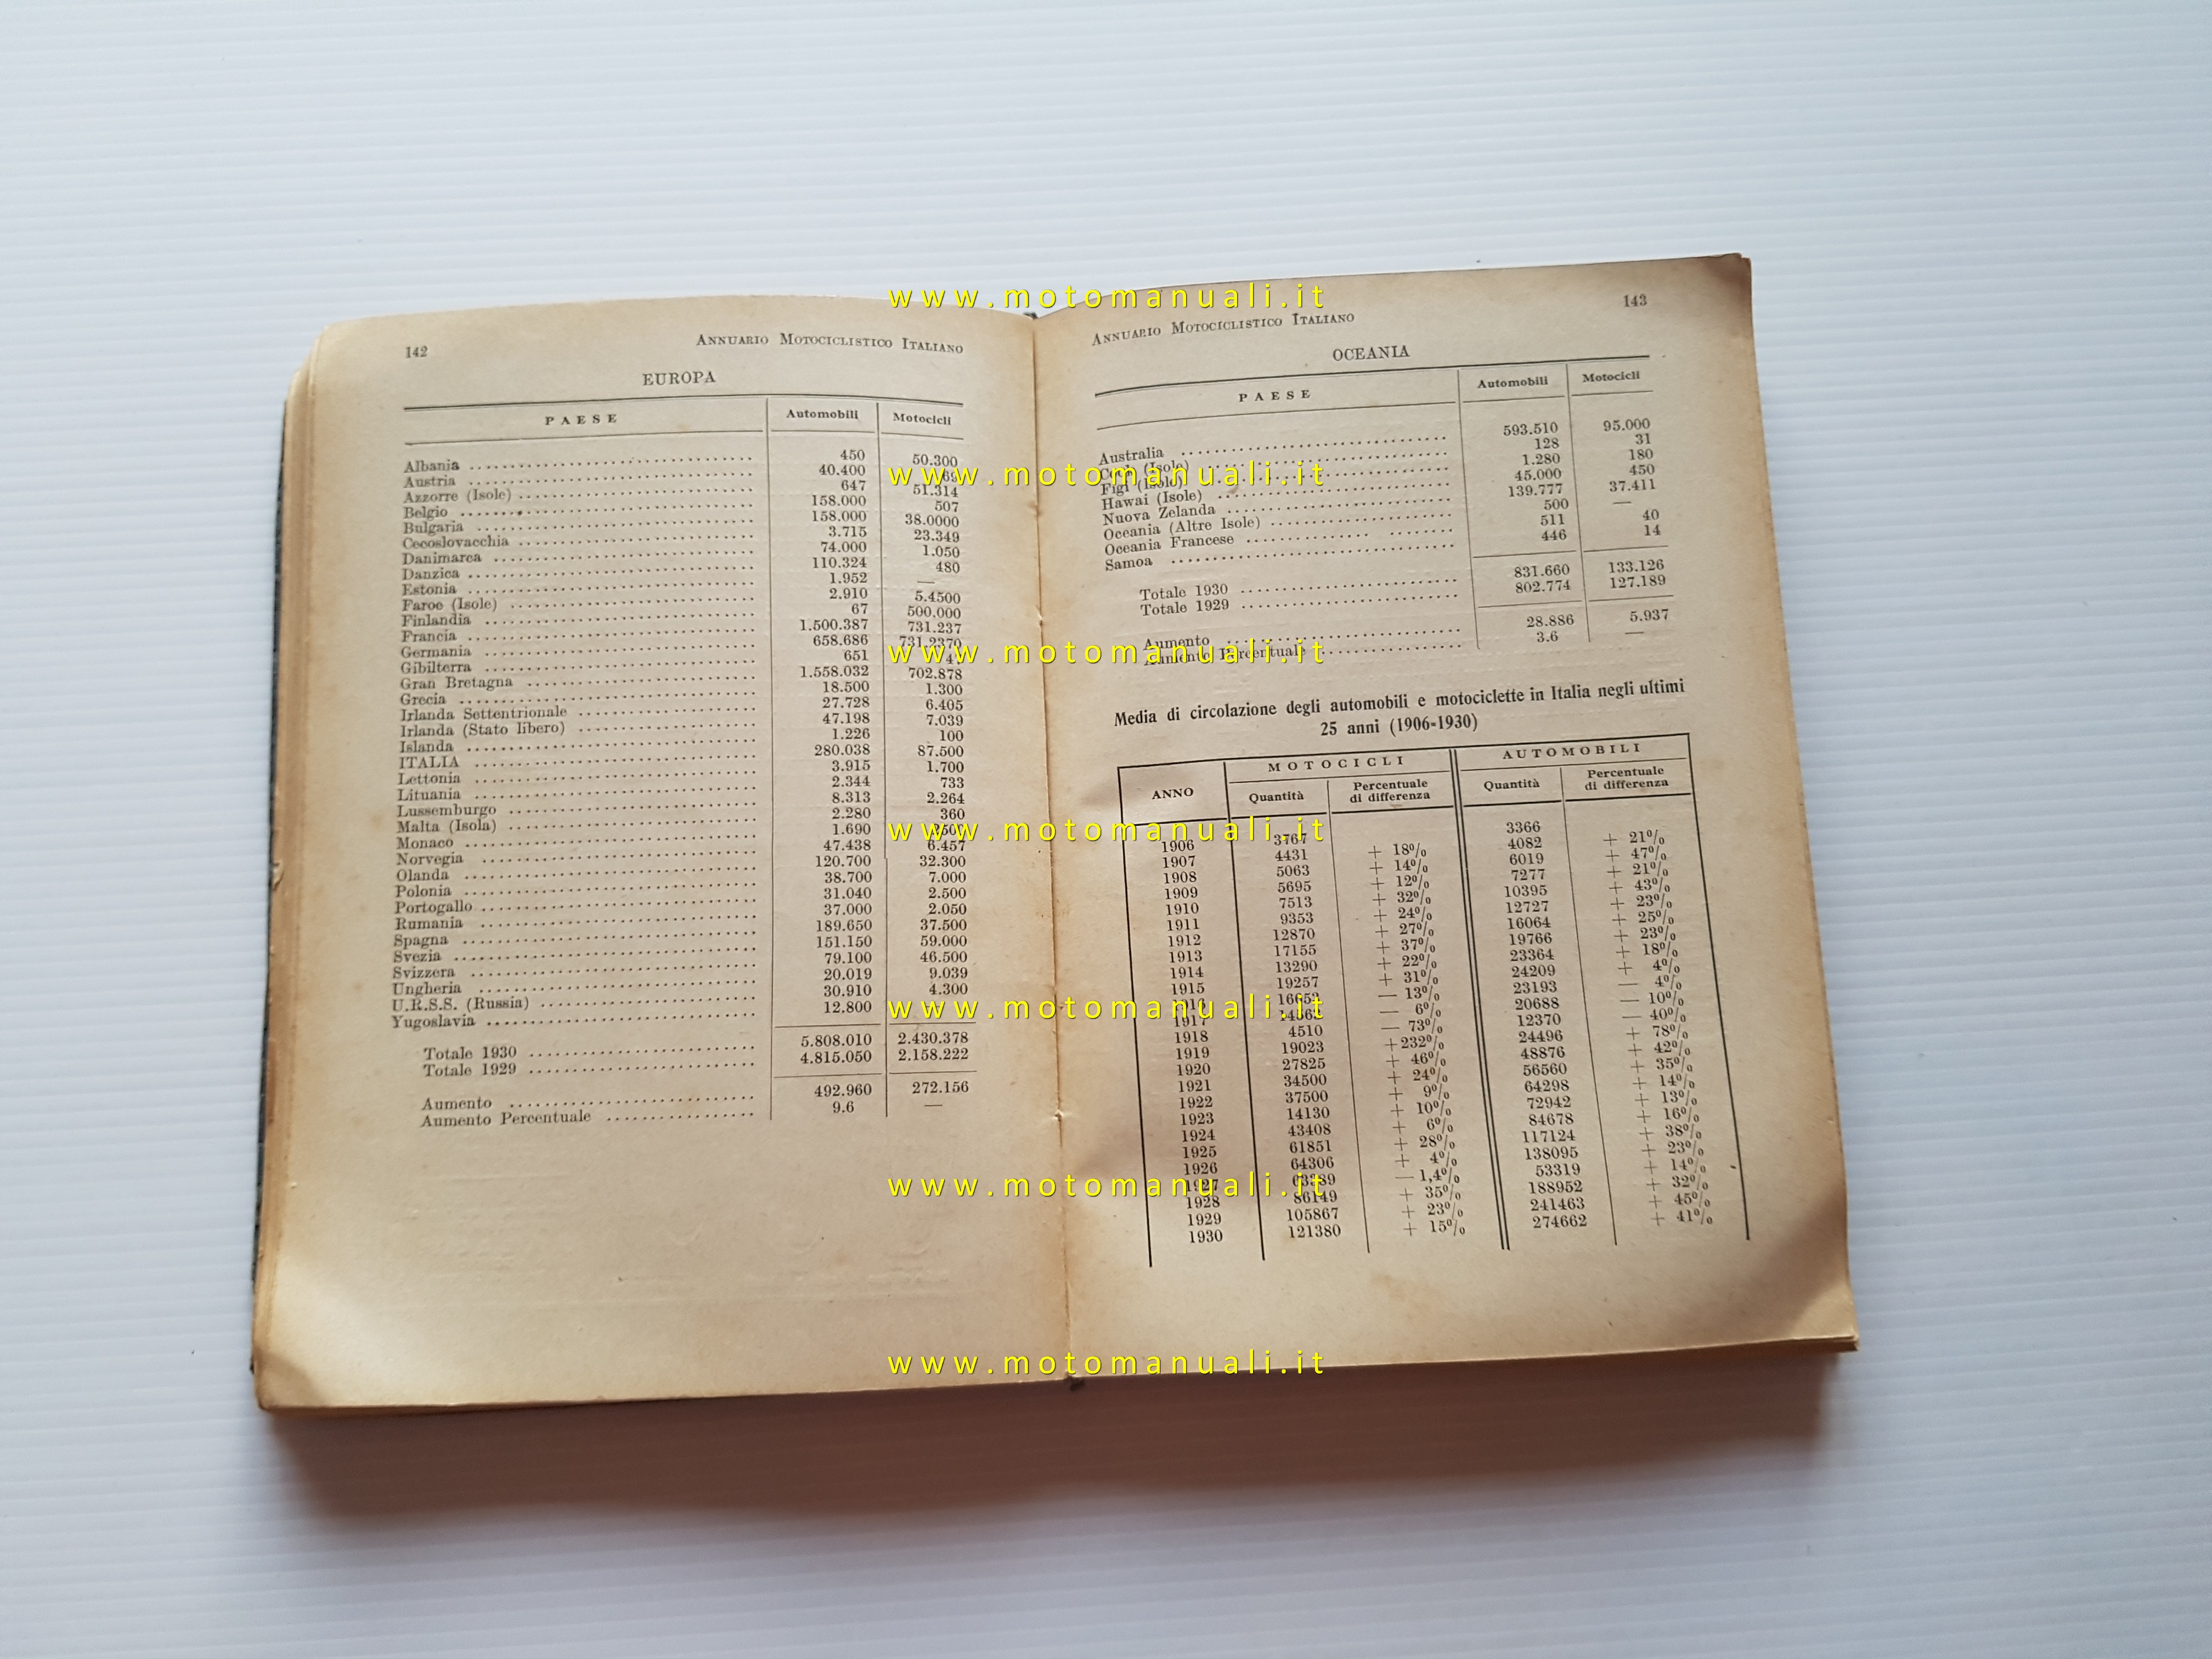 142
ANNUARIO MOTOCICLISTICO ITALIANO
EUROPA
PAESE Automobili Motocicli
Albania 450
Austria 40.400 50.300
Azzorre (Isole) 647
Belgio 158.000 51.314
Bulgaria 158.000 507
Cecoslovacchia 3.715 38.0000
Danimarca 74.000 23.349
Danzica 110.324 1.050
Estonia 1.952 480
Faroe (Isole) 2.910 —
Finlandia 67 5.4500
Francia 1.500.387 500.000
Germania 658.686 731.237
Gibilterra 651
Gran Bretagna 1.558.032 702.878
Grecia 18.500 1.300
Irlanda Settentrionale 27.728 6.405
Irlanda (Stato libero) 47.198 7.039
Islanda 1.226 100
ITALIA 280.038 87.500
Lettonia 3.915 1.700
Lituania 2.344 733
Lussemburgo 8.313 2.264
Malta (Isola) 2.280 360
Monaco 1.690
Norvegia 47.438 6.457
Olanda 120.700 32.300
Polonia 38.700 7.000
Portogallo 31.040 2.500
Rumania 37.000 2.050
Spagna 189.650 37.500
Svezia 151.150 59.000
Svizzera 79.100 46.500
Ungheria 20.019 9.039
U.R.S.S. (Russia) 30.910 4.300
Yugoslavia 12.800
Totale 1930 5.808.010 2.430.378
Totale 1929 4.815.050 2.158.222
Aumento 492.960 272.156
Aumento Percentuale 9.6 —
143
ANNUARIO MOTOCICLISTICO ITALIANO
OCEANIA
PAESE Automobili Motocicli
Australia 593.510 95.000
Cook (Isole) 128 31
Figi (Isole) 1.280 180
Hawai (Isole) 45.000 450
Nuova Zelanda 139.777 37.411
Oceania (Altre Isole) 500 —
Oceania Francese 511 40
Samoa 446 14
Totale 1930 831.660 133.126
Totale 1929 802.774 127.189
Aumento 28.886 5.937
Aumento Percentuale 3.6 —
Media di circolazione degli automobili e motociclette in Italia negli ultimi
25 anni (1906-1930)
ANNO MOTOCICLI AUTOMOBILI
Quantità Percentuale di differenza Quantità Percentuale di differenza
1906 3767 3366
1907 4431 + 18% 4082 + 21%
1908 5063 + 14% 6019 + 47%
1909 5695 + 12% 7277 + 21%
1910 7513 + 32% 10395 + 43%
1911 9353 + 24% 12727 + 23%
1912 12870 + 27% 16064 + 25%
1913 17155 + 37% 19766 + 23%
1914 13290 + 22% 23364 + 18%
1915 19257 + 31% 24209 + 4%
1916 — 13% 23193 — 4%
1917 — 6% 20688 — 10%
1918 4510 — 73% 12370 — 40%
1919 19023 +232% 24496 + 78%
1920 27825 + 46% 48876 + 42%
1921 34500 + 24% 56560 + 35%
1922 37500 + 9% 64298 + 14%
1923 14130 + 10% 72942 + 13%
1924 43408 + 6% 84678 + 16%
1925 61851 + 28% 117124 + 38%
1926 64306 + 4% 138095 + 23%
1927 — 1,4% 53319 + 14%
1928 86149 + 35% 188952 + 32%
1929 105867 + 23% 241463 + 45%
1930 121380 + 15% 274662 + 41%
www.motomanuali.it
www.motomanuali.it
www.motomanuali.it
www.motomanuali.it
www.motomanuali.it
www.motomanuali.it
www.motomanuali.it